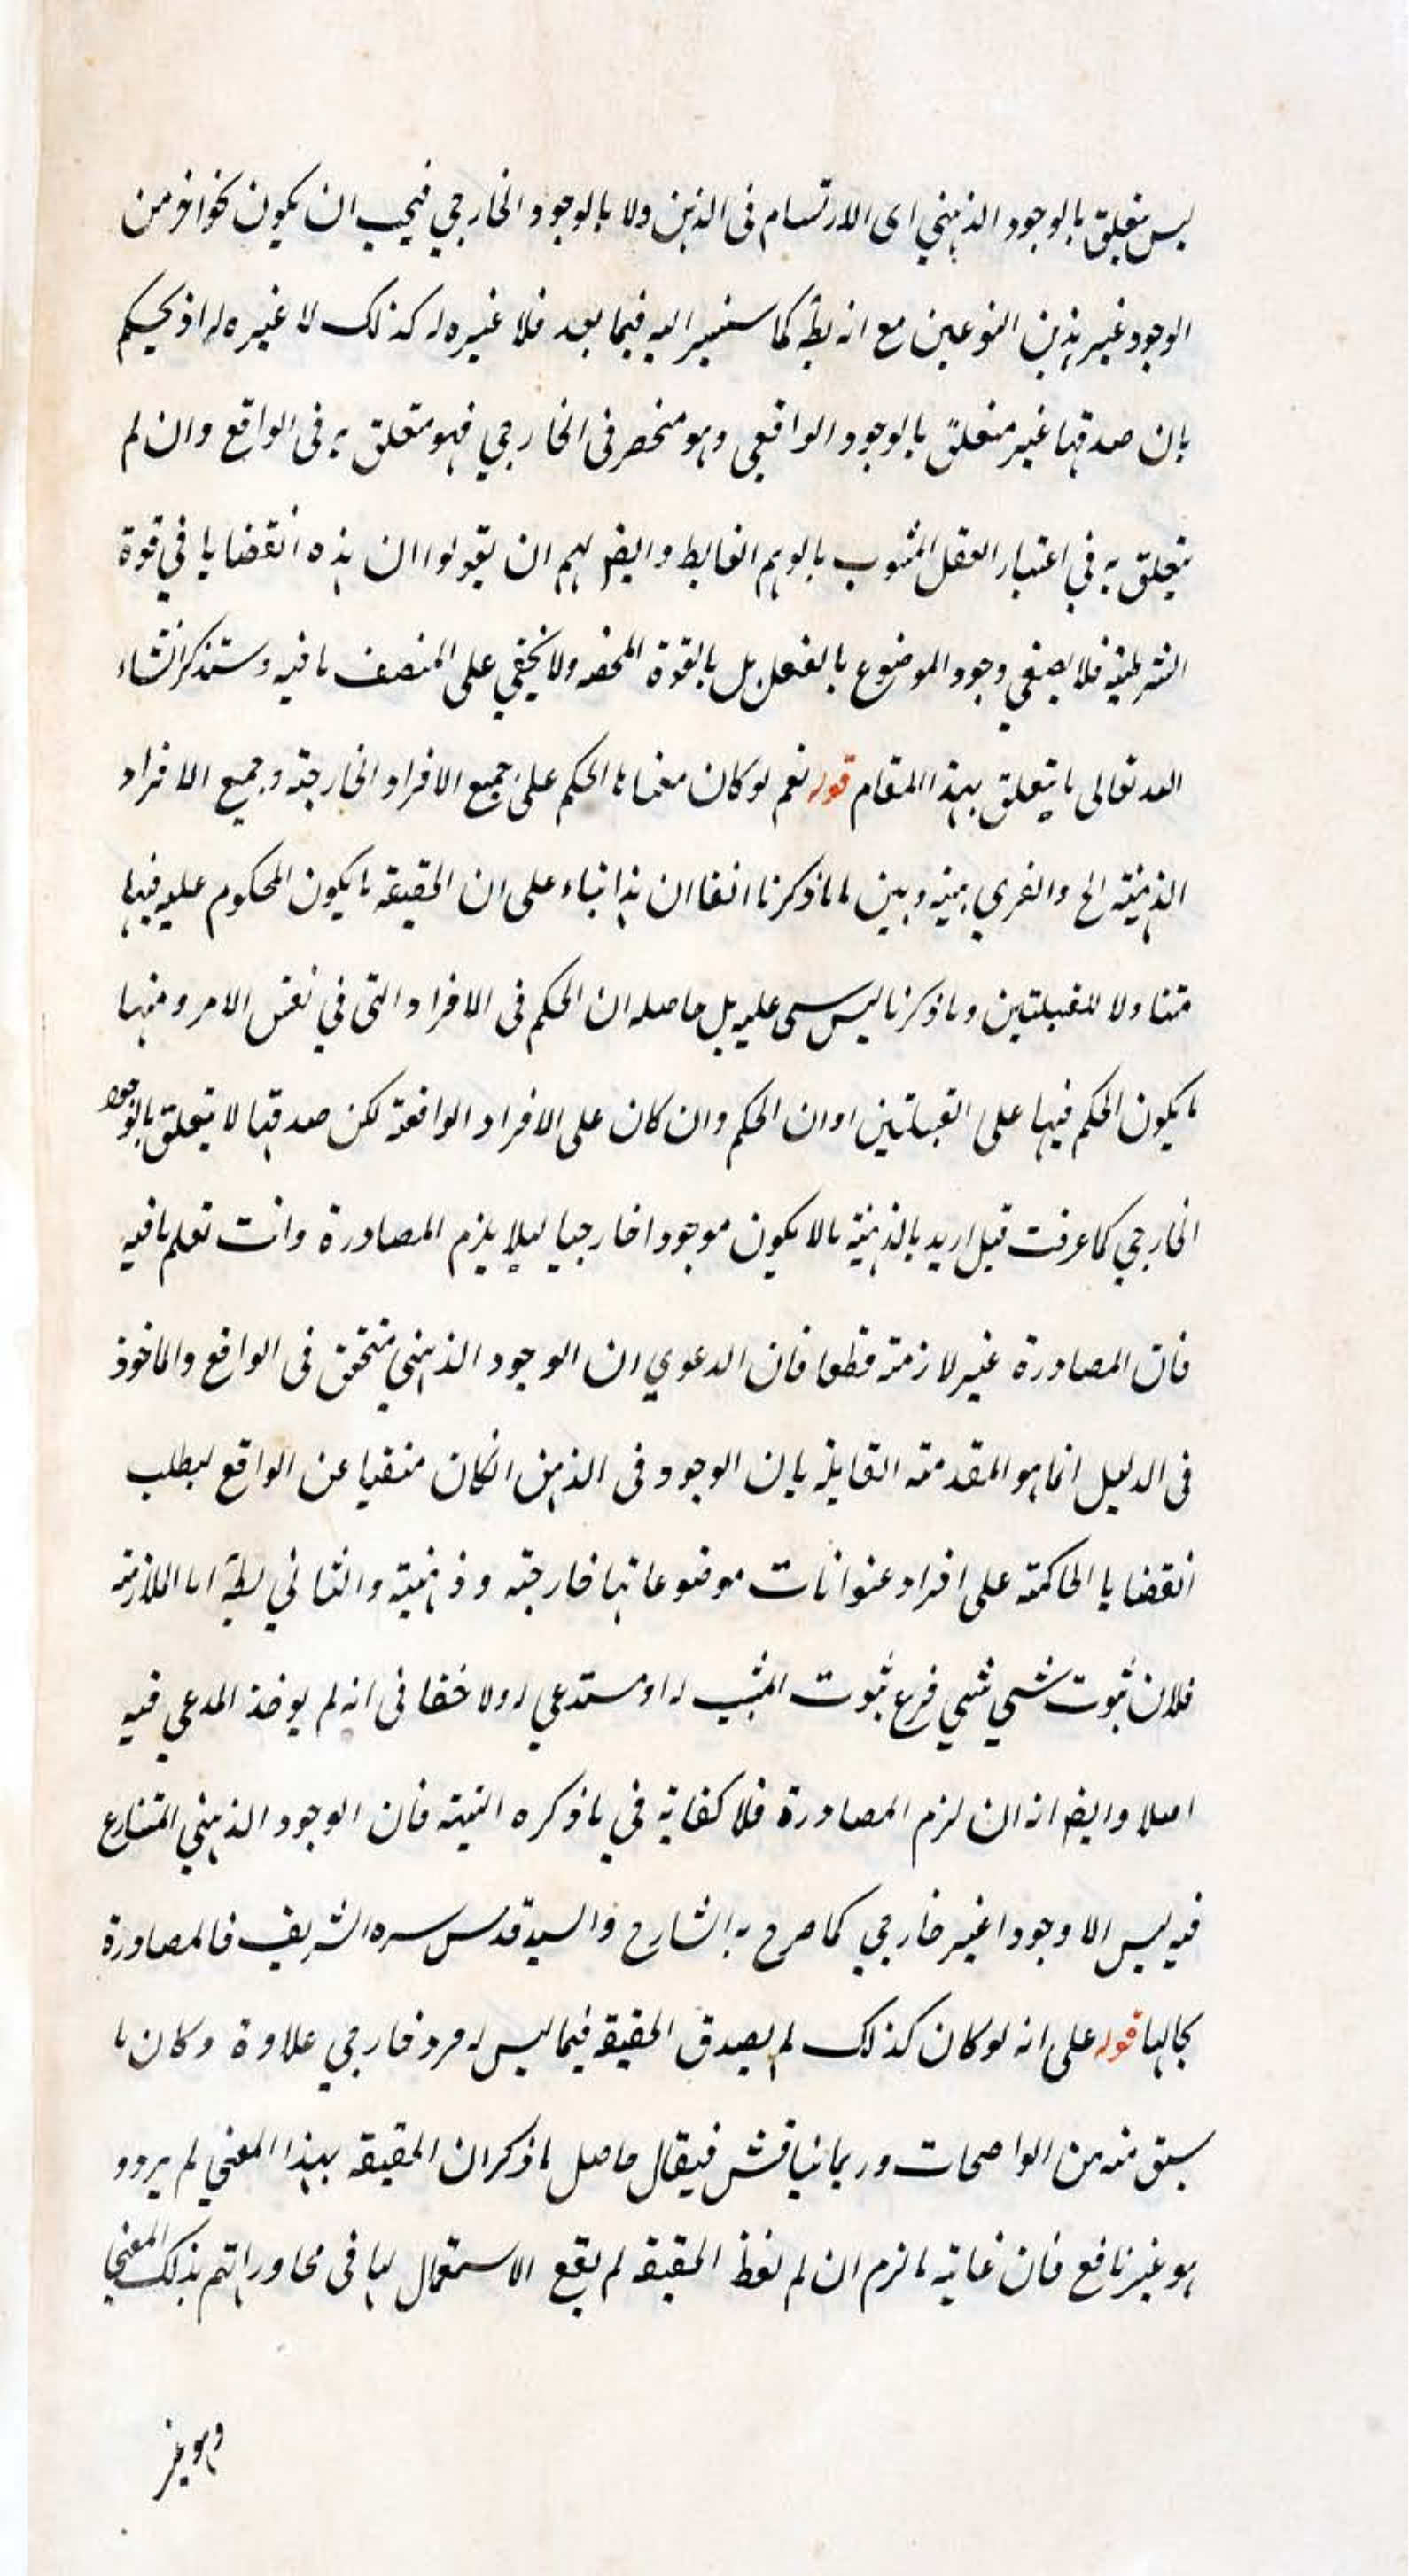 ليس متعلق بالوجود الذهني اى الارتسام فى الذهن ولا بالوجود الخارجي فيجب ان يكون نحوا اخر من
الوجود غير هذين النوعين مع انه بط كما سنشير اليه فيما بعد فلا غيره له كذلك لا غيره له اذ يحكم
بان صدقها غير متعلق بالوجود الواقعي وهو منحصر فى الخارجي فهو متعلق به فى الواقع وان لم
يتعلق به في اعتبار العقل المشوب بالوهم الغالط وايض لهم ان يقولوا ان هذه القضايا في قوة
الشرطية فلا يقتضي وجود الموضوع بالفعل بل بالقوة المحضه ولا يخفي على المنصف ما فيه وستذكر انشاء
الله تعالى ما يتعلق بهذا المقام قوله نعم لو كان معناها الحكم على جميع الافراد الخارجية وجميع الافراد
الذهنية الخ والفرق بينه وبين ما ذكرنا انفا ان هذا بناء على ان الحقيقة ما يكون المحكوم عليه فيها
متناولا للقبيلتين وما ذكرنا ليس عليه بل حاصله ان الحكم فى الافراد التى في نفس الامر ومنها
ما يكون الحكم فيها على القبيلتين او ان الحكم وان كان على الافراد الواقعة لكن صدقها لا يتعلق بالوجود
الخارجي كما عرفت قيل اريد بالذهنية ما لا يكون موجودا خارجيا ليلا يلزم المصادرة وانت تعلم ما فيه
فان المصادرة غير لازمة قطعا فان الدعوي ان الوجود الذهني متحقق فى الواقع والماخوذ
فى الدليل انما هو المقدمة القايلة بان الوجود فى الذهن انكان منفيا عن الواقع لبطلت
القضايا الحاكمة على افراد عنوانات موضوعاتها خارجية وذهنية والثاني بط اما الملازمة
فلان ثبوت شئي لشئي فرع ثبوت المثبت له او مستدعي له ولا خفا فى انه لم يوخذ المدعي فيه
اصلا وايض انه ان لزم المصادرة فلا كفاية في ما ذكره البتة فان الوجود الذهني المتنازع
فيه ليس الا وجودا غير خارجي كما صرح به الشارح والسيد قدس سره الشريف فالمصادرة
بحالها قوله على انه لو كان كذلك لم يصدق الحقيقة فيما ليس له فرد خارجي علاوة وكان ما
سبق منه من الواضحات وربما يناقش فيقال حاصل ما ذكر ان الحقيقة بهذا المعني لم يرد و
هو غير نافع فان غاية ما لزم ان لم لفظ الحقيقة لم يقع الاستعمال لها فى محاوراتهم بذلك المعني
وهو غير